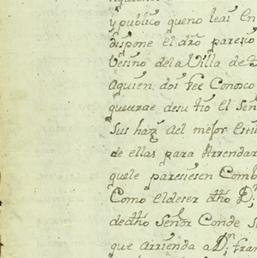 y publico que no leai En
dispone el dro. pareció
Vesino de la Villa de
aquien doi fee Conoco
que crae de su tio el Señ
Sus haz. del mejor Esti
de ellas para Arrendar
que le paresiesen Com
Como el de ser dho D.
de dho Señor Conde S
que arrienda a D.n Fran